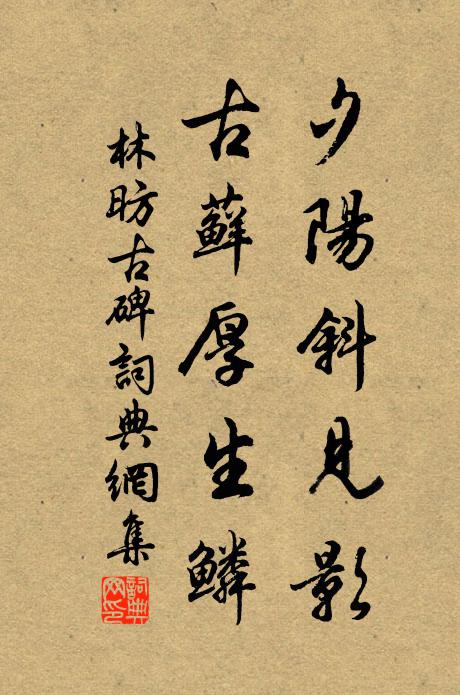 夕陽斜見影
古蘚厚生鱗
林昉古碑詞典網集
詞典网印